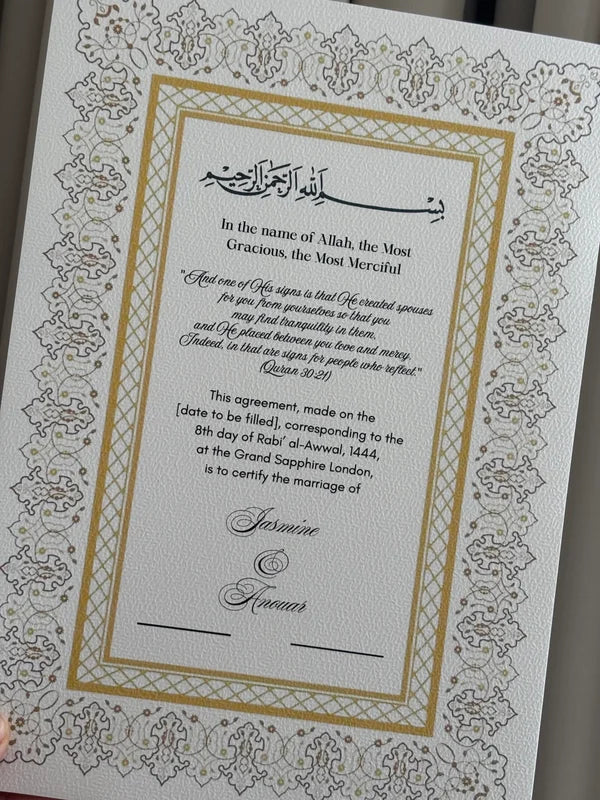 بسم الله الرحمن الرحيم
In the name of Allah, the Most
Gracious, the Most Merciful
"And one of His signs is that He created spouses
for you from yourselves so that you
may find tranquility in them,
and He placed between you love and mercy.
Indeed, in that are signs for people who reflect."
(Quran 30:21)
This agreement, made on the
[date to be filled], corresponding to the
8th day of Rabi' al-Awwal, 1444,
at the Grand Sapphire London,
is to certify the marriage of
Jasmine
&
Anouar